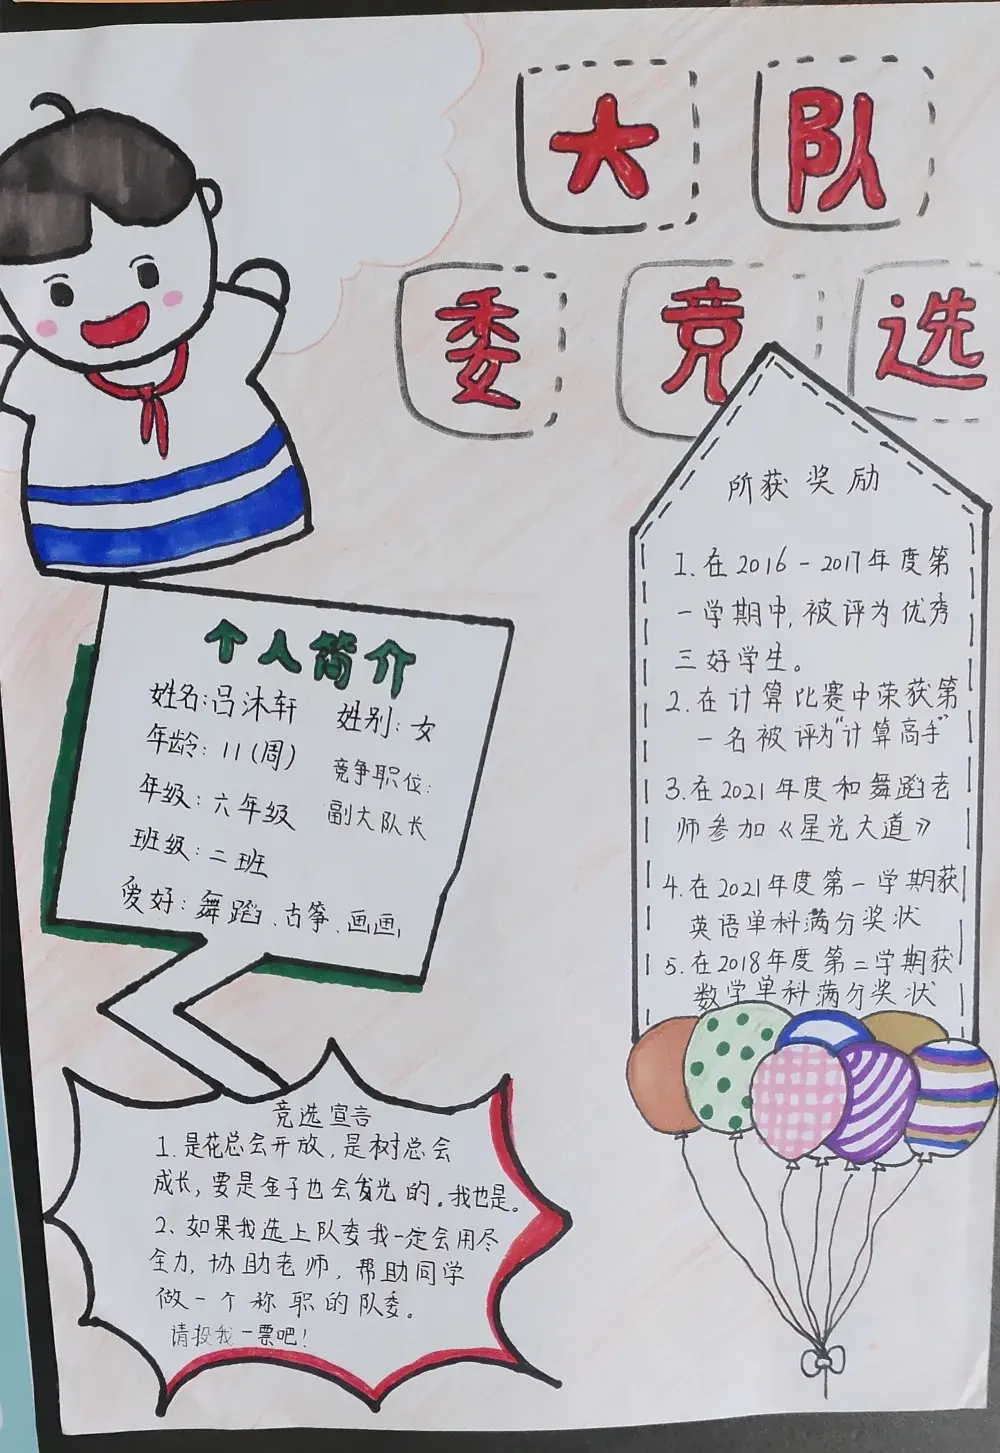 大队
委竞选
个人简介
姓名:吕沐轩 姓别:女
年龄:11(周) 竞争职位:
年级:六年级 副大队长
班级:二班
爱好:舞蹈、古筝、画画,
阶获奖励
1.在2016-2017年度第
一学期中,被评为优秀
三好学生。
2.在计算比赛中荣获第
一名被评为"计算高手"
3.在2021年度和舞蹈老
师参加《星光大道》
4.在2021年度第一学期获
英语单科满分奖状
5.在2018年度第二学期获
数学单科满分奖状
竞选宣言
1.是花总会开放,是树总会
成长,要是金子也会发光的。我也是。
2、如果我选上队委我一定会用尽
全力,协助老师,帮助同学
做一个称职的队委。
请投我一票吧!